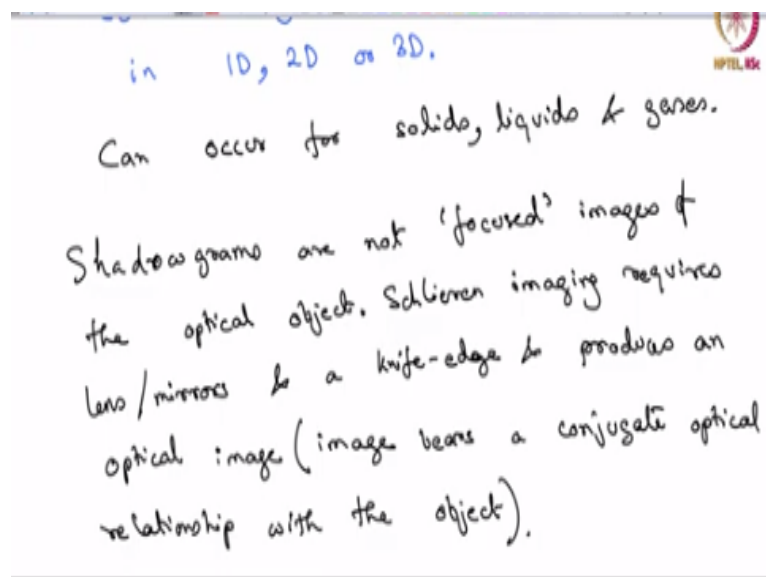 in 1D, 2D or 3D.
NPTEL, IISc
Can occur for solids, liquids & gases.
Shadowgrams are not 'focused' images of
the optical object. Schlieren imaging requires
lens/mirrors & a knife-edge to produces an
optical image (image bears a conjugate optical
relationship with the object).